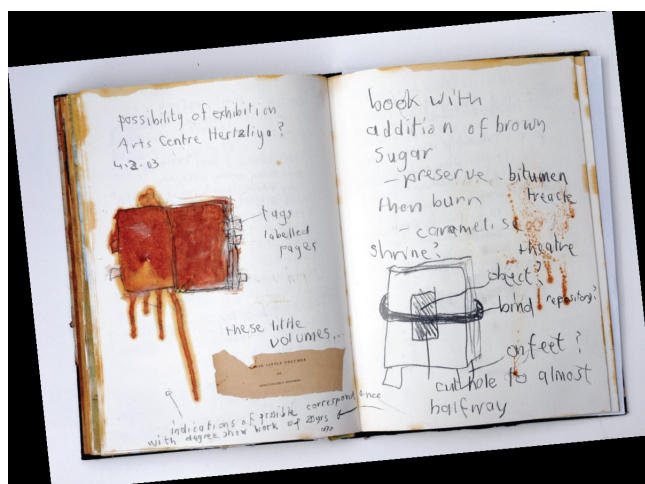 possibility of exhibition
Arts Centre Hertzliya?
4.2.03
tags
labelled
pages
these little
volumes...
THESE LITTLE VOLUMES
indications of possible correspondence
with degree show work of 20yrs
ago
book with
addition of brown
sugar
- preserve - bitumen
treacle
then burn
- caramelise
theatre
shrine?
object?
bind repository?
on feet?
cut hole to almost
halfway